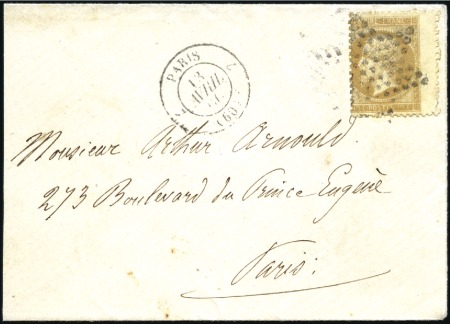 PARIS
13
AVRIL
(60)
Monsieur Arthur Arnould
273 Boulevard du Prince Eugène
Paris